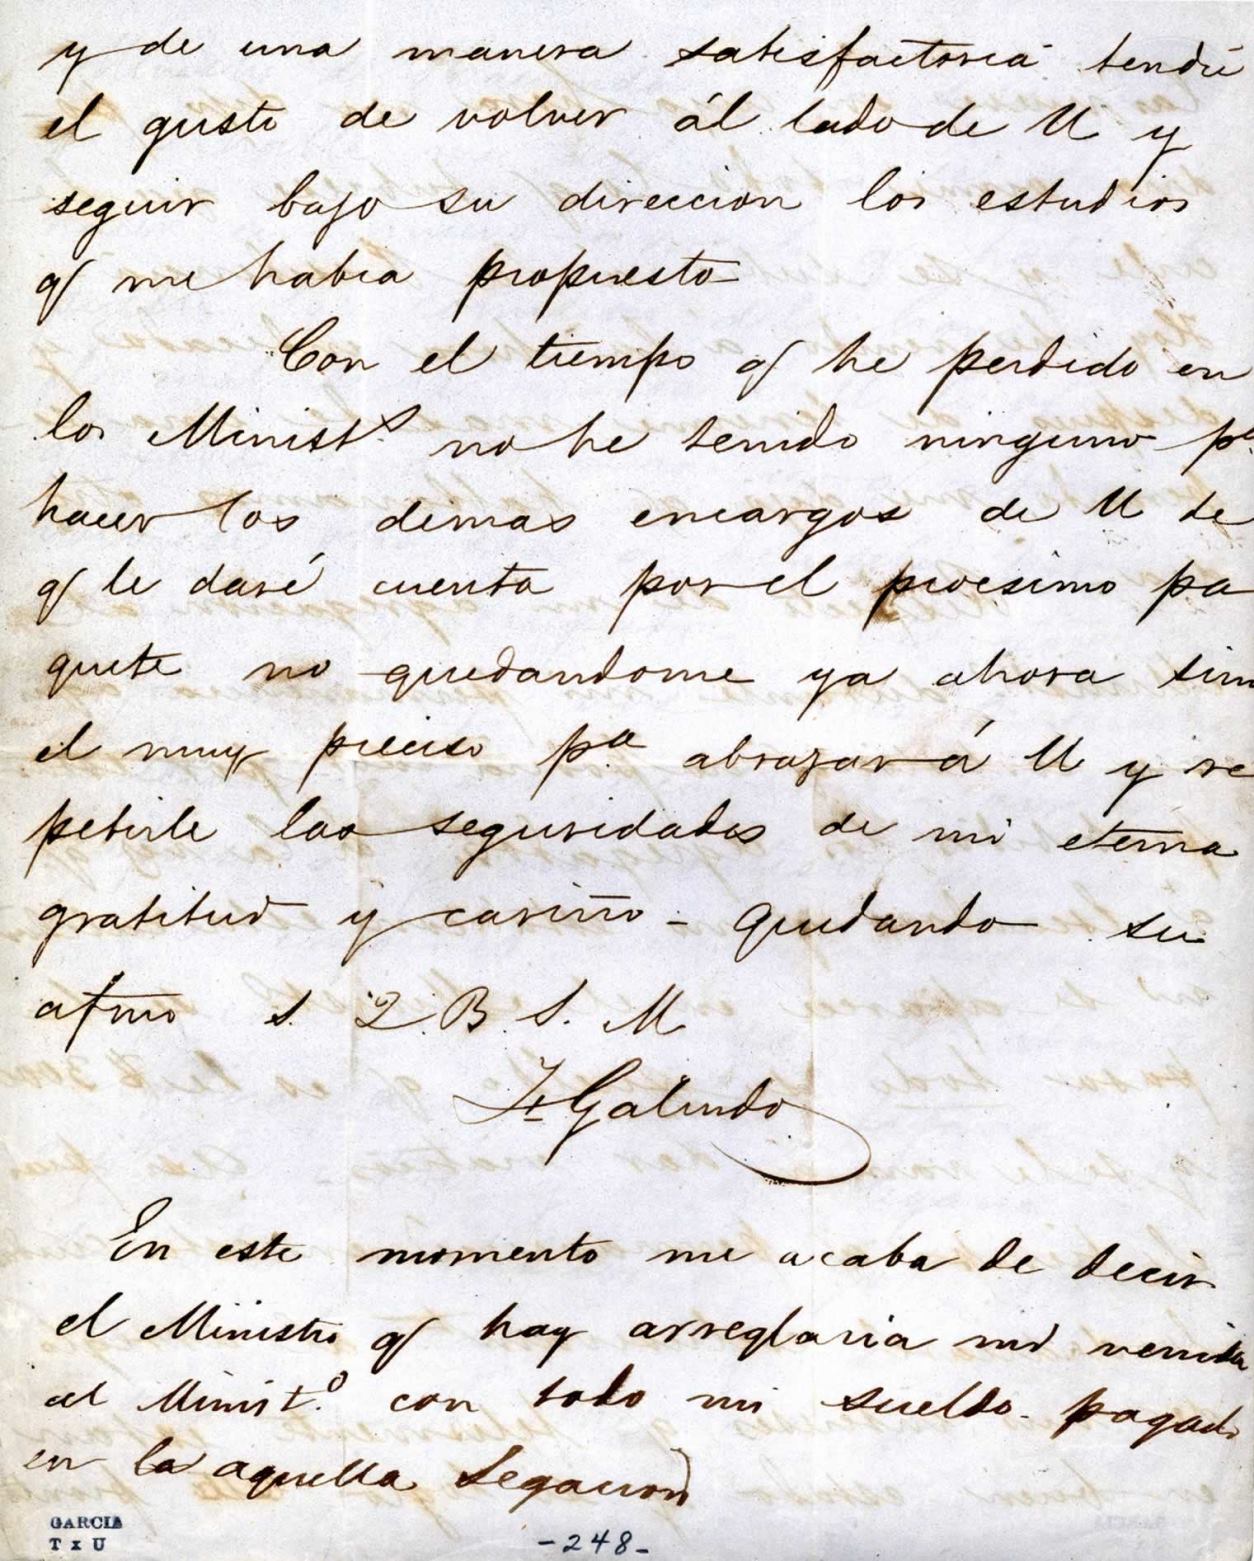 y de una manera satisfactoria tendré
el gusto de volver ál lado de U y
seguir bajo su direccion los estudios
q me habia propuesto
Con el tiempo q he perdido en
los Minist.s no he tenido ninguno pa
hacer los demas encargos de U de
q le daré cuenta por el procsimo pa
quete no quedandome ya ahora sino
el muy preciso pa abrazar á U y re
petirle las seguridades de mi eterna
gratitud y cariño - quedando su
afmo S. Q. B. S. M
Galindo
En este momento me acaba de decir
el Ministro q hoy arreglaria mi venida
al Minist.o con todo mi sueldo pagado
en la aquella Legacion
GARCIA
T x U
-248-